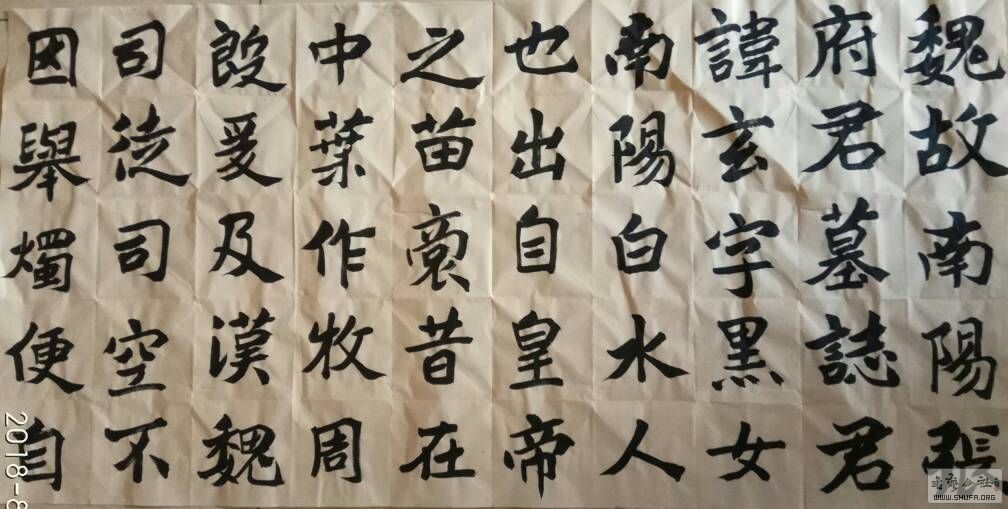 魏故南陽張
府君墓誌君
諱玄字黑女
南陽白水人
也出自皇帝
之苗裔昔在
中葉作牧周
殷爰及漢魏
司徒司空不
因舉燭便自
2018-8
WWW.SHUFA.ORG